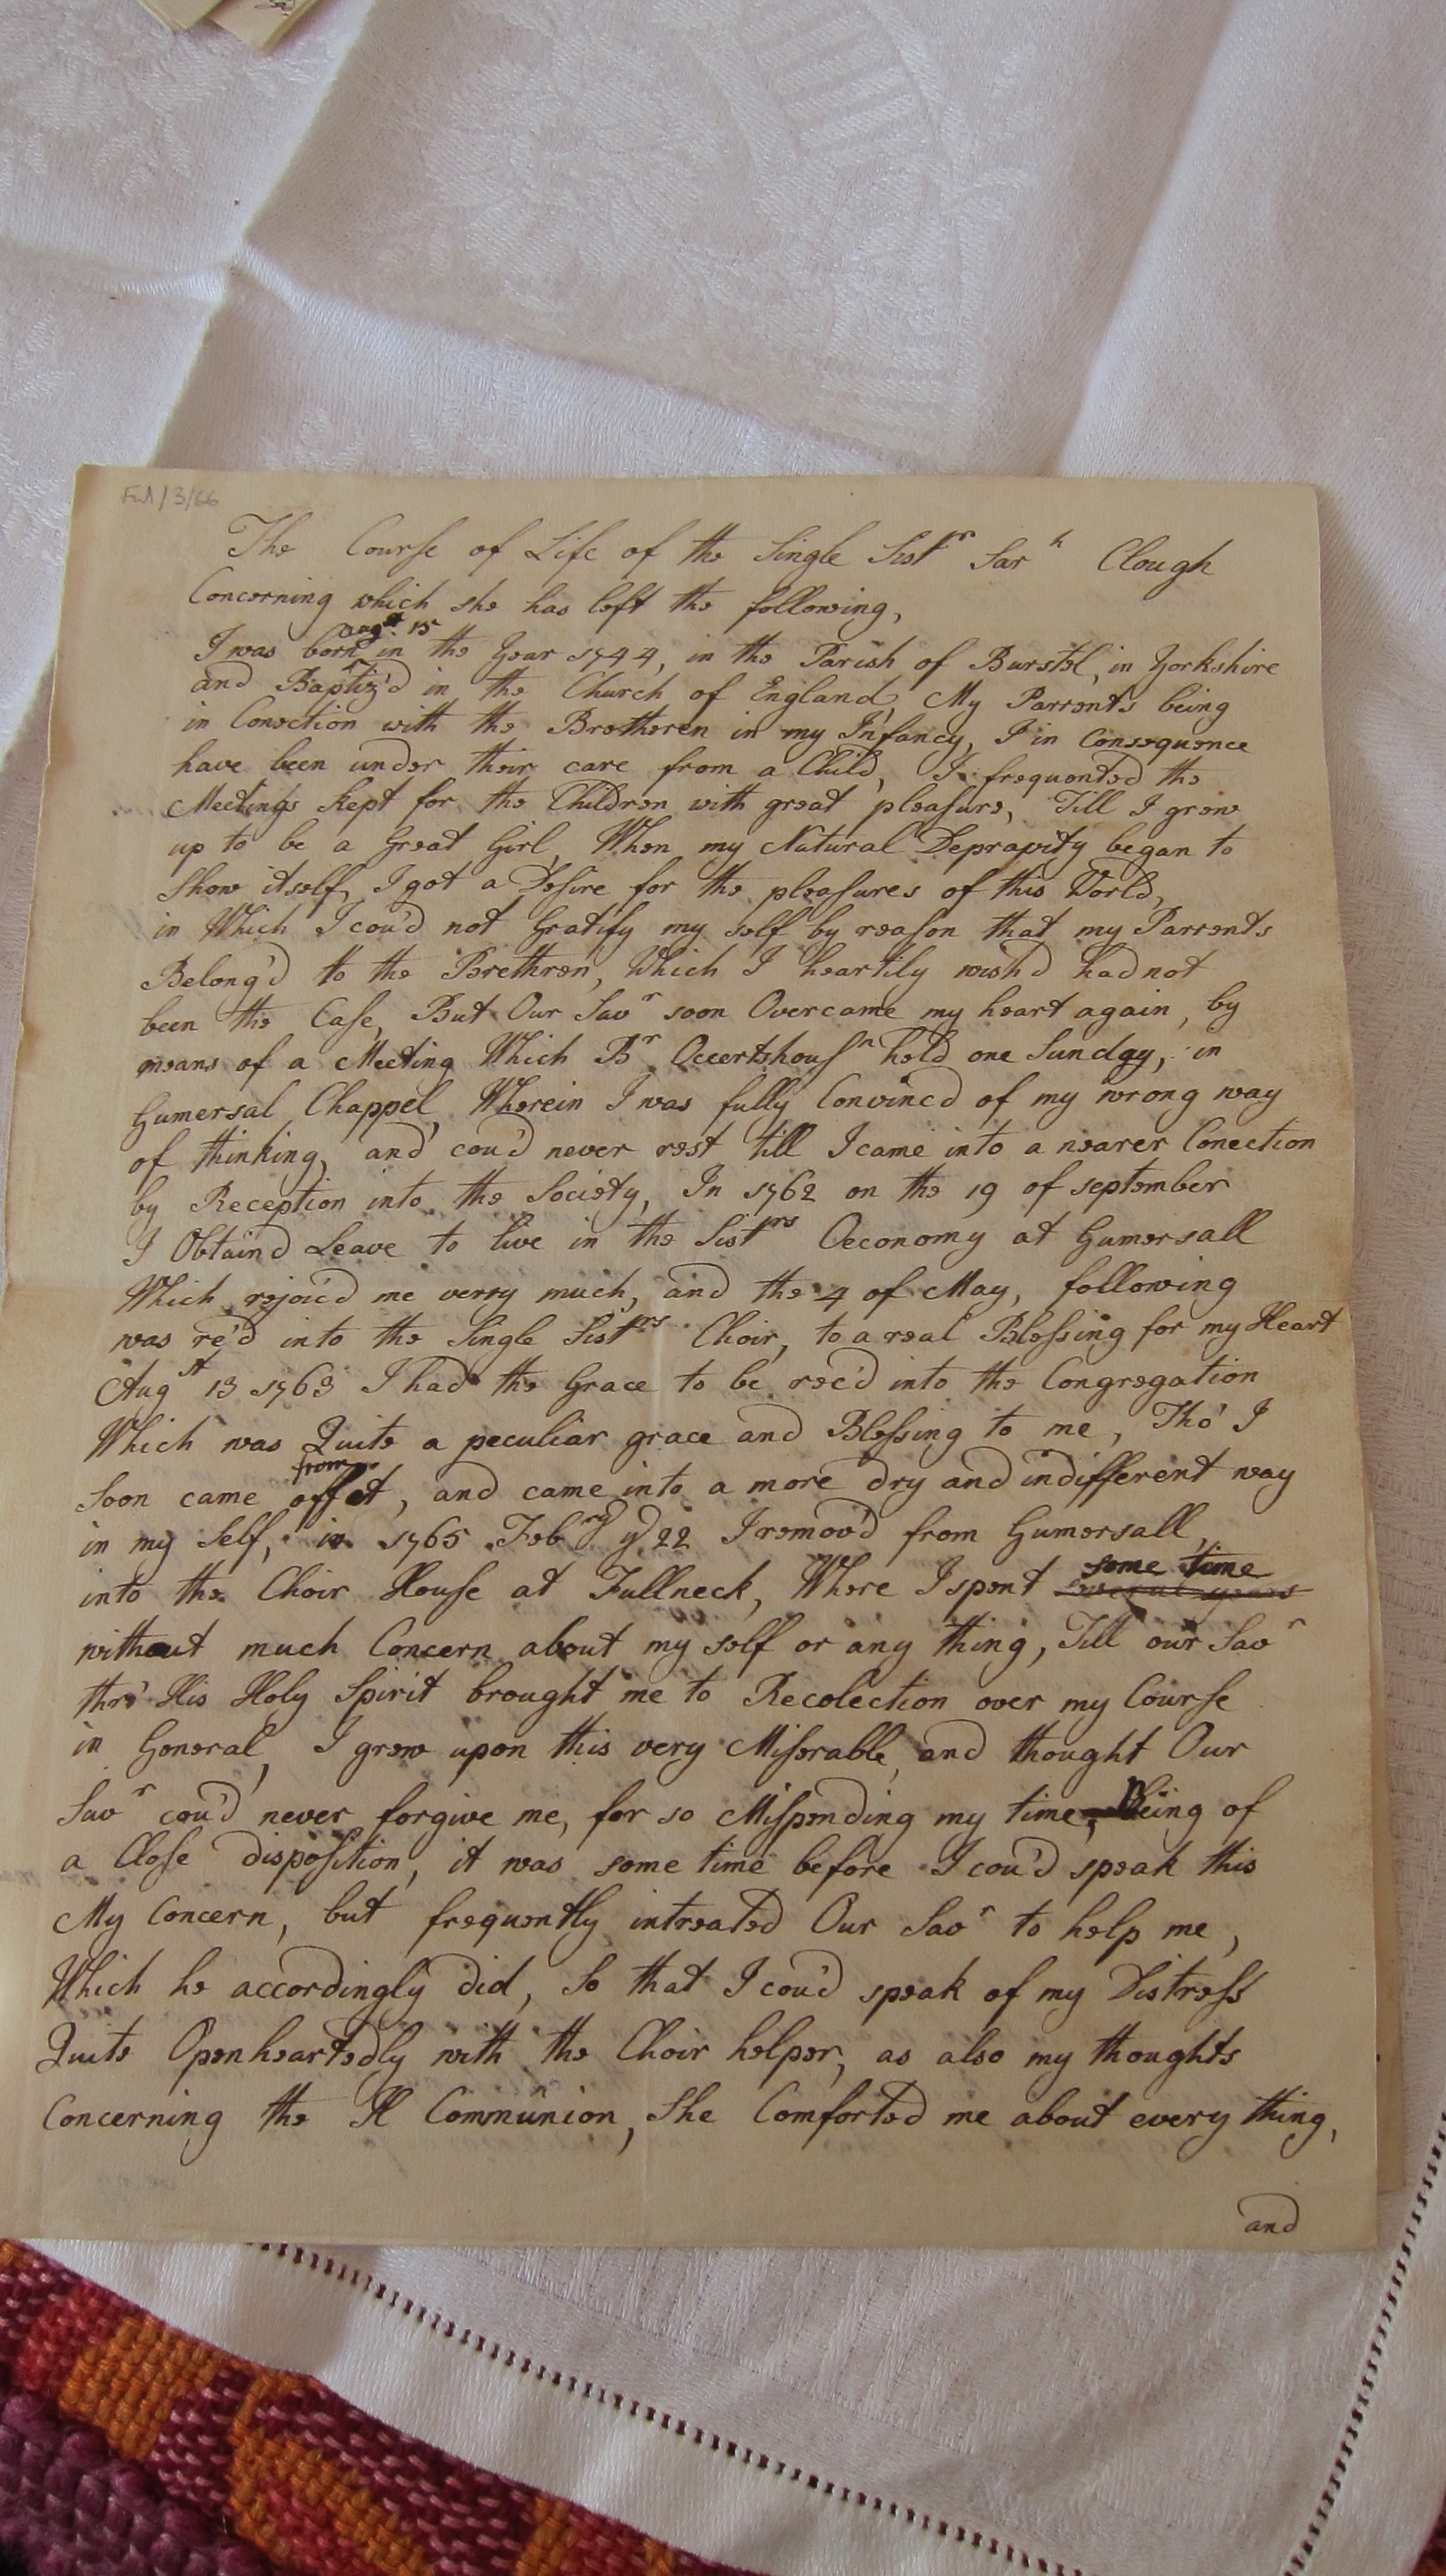 Ful/3/66
The Course of Life of the Single Sistr Sarh Clough
Concerning which she has left the following,
Augst 15
I was born in the Year 1744, in the Parish of Burstel, in Yorkshire
and Baptiz'd in the Church of England, My Parrents being
in Conection with the Bretheren in my Infancy, I in Consequence
have been under their care from a Child, I frequented the
Meetings kept for the Children with great pleasure, Till I grew
up to be a Great Girl, When my Natural Depravity began to
Show itself, I got a Desire for the pleasures of this World,
in Which I cou'd not Gratify my self by reason that my Parrents
Belong'd to the Brethren, Which I heartily wish'd had not
been the Case, But Our Savr soon Overcame my heart again, by
means of a Meeting Which Br Occertshousn held one Sunday, in
Gumersal Chappel, Wherein I was fully Convinc'd of my wrong way
of thinking, and cou'd never rest till I came into a nearer Conection
by Reception into the Society, In 1762 on the 19 of september
I Obtain'd Leave to live in the Sistrs Oeconomy at Gumersall
Which rejoic'd me verry much, and the 4 of May, following
was re'd into the Single Sistrs Choir, to a real Blessing for my Heart
Augst 13 1763 I had the Grace to be rec'd into the Congregation
Which was Quite a peculiar grace and Blessing to me, Tho' I
from
Soon came off it, and came into a more dry and indifferent way
in my Self, in 1765 Febry ye 22 I remov'd from Gumersall,
some time
into the Choir House at Fullneck, Where I spent several years
without much Concern about my self or any thing, Till our Savr
thro' His Holy Spirit brought me to Recolection over my Course
in General, I grew upon this very Miserable, and thought Our
Savr cou'd never forgive me, for so Mispending my time, Being of
a Close disposition, it was some time before I cou'd speak this
My Concern, but frequently intreated Our Savr to help me,
Which he accordingly did, So that I cou'd speak of my Distress
Quite Openheartedly with the Choir helper, as also my thoughts
Concerning the H Communion, She Comforted me about every thing,
and